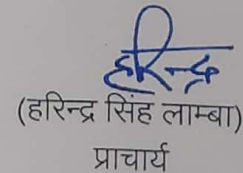 हरिन्द्र
(हरिन्द्र सिंह लाम्बा)
प्राचार्य